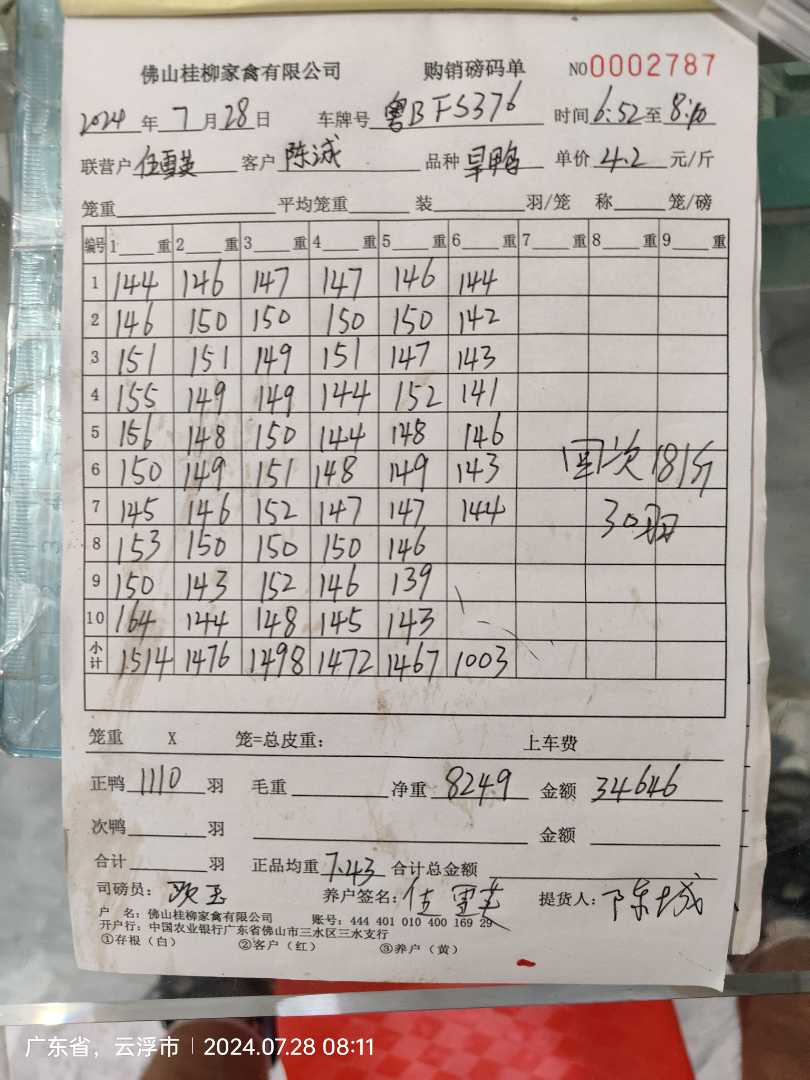 佛山桂柳家禽有限公司 购销磅码单 NO 0002787
2024 年 7 月 28 日 车牌号 粤BFS376 时间 6:52 至 8:10
联营户 客户 陈诚 品种 旱鸭 单价 4.2 元/斤
笼重 平均笼重 装 羽/笼 称 笼/磅
编号 1 重 2 重 3 重 4 重 5 重 6 重 7 重 8 重 9 重
1 144 146 147 147 146 144
2 146 150 150 150 150 142
3 151 151 149 151 147 143
4 155 149 149 144 152 141
5 156 148 150 144 148 146
6 150 149 151 148 149 143
回次181斤
7 145 146 152 147 147 144
30羽
8 153 150 150 150 146
9 150 143 152 146 139
10 164 144 148 145 143
小计 1514 1476 1498 1472 1467 1003
笼重 X 笼=总皮重: 上车费
正鸭 1110 羽 毛重 净重 8249 金额 34646
次鸭 羽 金额
合计 羽 正品均重 7.43 合计总金额
司磅员: 养户签名: 提货人: 陈城
户 名: 佛山桂柳家禽有限公司 账号: 444 401 010 400 169 29
开户行: 中国农业银行广东省佛山市三水区三水支行
①存根(白) ②客户(红) ③养户(黄)
广东省, 云浮市 | 2024.07.28 08:11